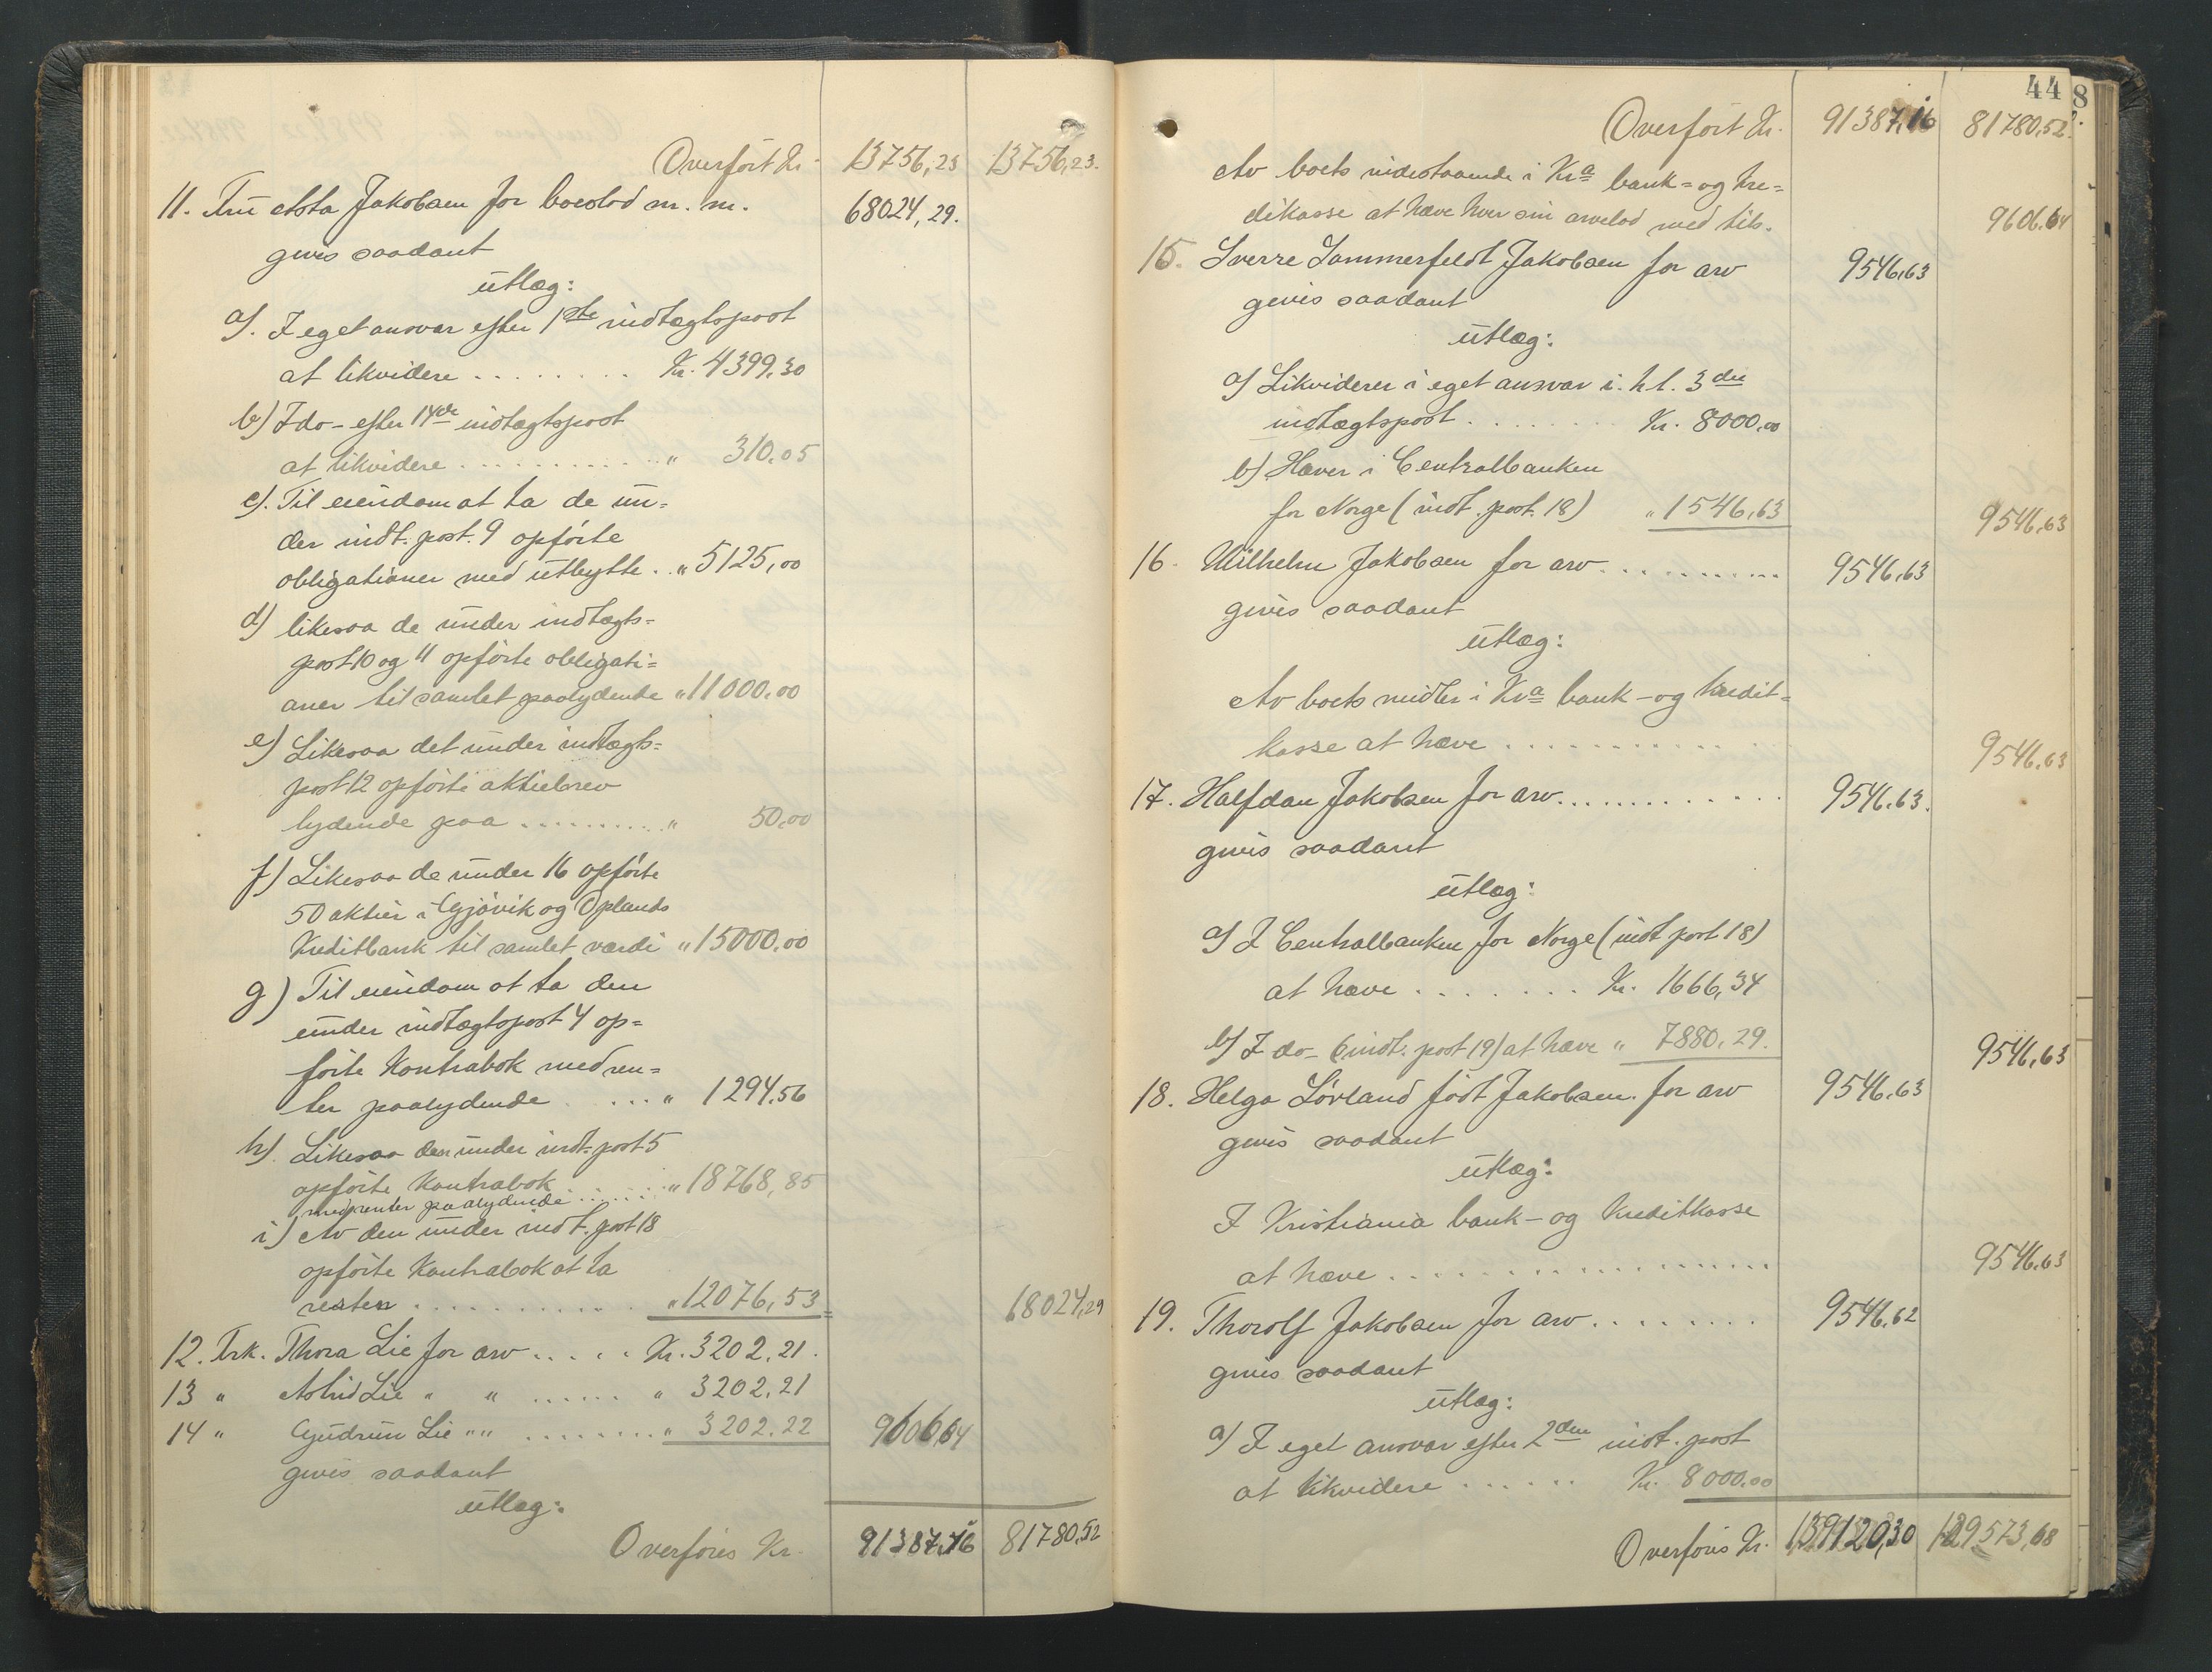 Overført Kr. 13756,23 13756,23.
11. Fru Asta Jakobsen for boeslod m. m. 68024,29.
gives saadant
utlæg:
a). I eget ansvar efter 1ste indtægtspost
at likvidere . . . . . . . . Kr. 4399,30
b) I do - efter 14de indtægtspost
at likvidere . . . . . . . . . . " 310,05
c). Til eiendom at ta de un=
der indt. post. 9 opførte
obligationer med utbytte . . " 5125,00
d) likesaa de under indtægts=
post 10 og 11 opførte obligati=
oner til samlet paalydende " 11000,00
e) Likesaa det under indtægts=
post 12 opførte aktiebrev
lydende paa . . . . . . . . . . " 50,00
f) Likesaa de under 16 opførte
50 aktier i Gjøvik og Oplands
Kreditbank til samlet værdi " 15000,00
g) Til eiendom at ta den
under indtægtspost 4 op=
førte Kontrabok med ren=
ter paalydende . . . . " 1294,56
h). Likesaa den under indt. post 5
opførte Kontrabok . . . . . . " 18768,85
med renter paalydende
i) Av den under indt. post 18
opførte Kontrabok at ta
resten . . . . . . . . . . . " 12076,53 68024,29
12. Frk. Thora Lie for arv . . . . . Kr. 3202,21.
13 " Astrid Lie " " . . . . . . " 3202,21
14 " Gudrun Lie " " . . . . . . . . . " 3202,22 9606,64
gives saadant
utlæg:
Overføres Kr. 91387,16 81780,52
44
8
Overført Kr. 91387,16 81780,52.
Av boets indestaaende i Kra bank= og kre=
ditkasse at hæve hver sin arvelod med tils. 9606,64
15. Sverre Sommerfeldt Jakobsen for arv 9546,63
gives saadant
utlæg:
a) Likviderer i eget ansvar i. h. t. 3die
indtægtspost . . . . . . . . Kr. 8000,00
b) Hæver i Centralbanken
for Norge (indt. post. 18) " 1546,63 9546,63
16. Wilhelm Jakobsen for arv . . . . . . . . . . . 9546,63
gives saadant
utlæg:
Av boets midler i Kra bank - og kredit=
kasse at hæve . . . . . . . . . . . . . 9546,63
17. Halfdan Jakobsen for arv . . . . . . . . . . . . 9546,63.
gives saadant
utlæg:
a) I Centralbanken for Norge (indt post 18)
at hæve . . . . . . . . Kr. 1666,34
b) I do - (indt. post 19) at hæve " 7880,29. 9546,63
18. Helga Løvland født Jakobsen. for arv 9546,63
gives saadant
utlæg:
I Kristiania bank - og Kreditkasse
at hæve . . . . . . . . . . . . . . . . . . . 9546,63
19. Thorolf Jakobsen for arv . . . . . . . . . 9546,62
gives saadant
utlæg:
a) I eget ansvar efter 2den indt. post
at likvidere . . . . . . Kr. 8000,00
Overføres Kr. 139120,30 129573,68